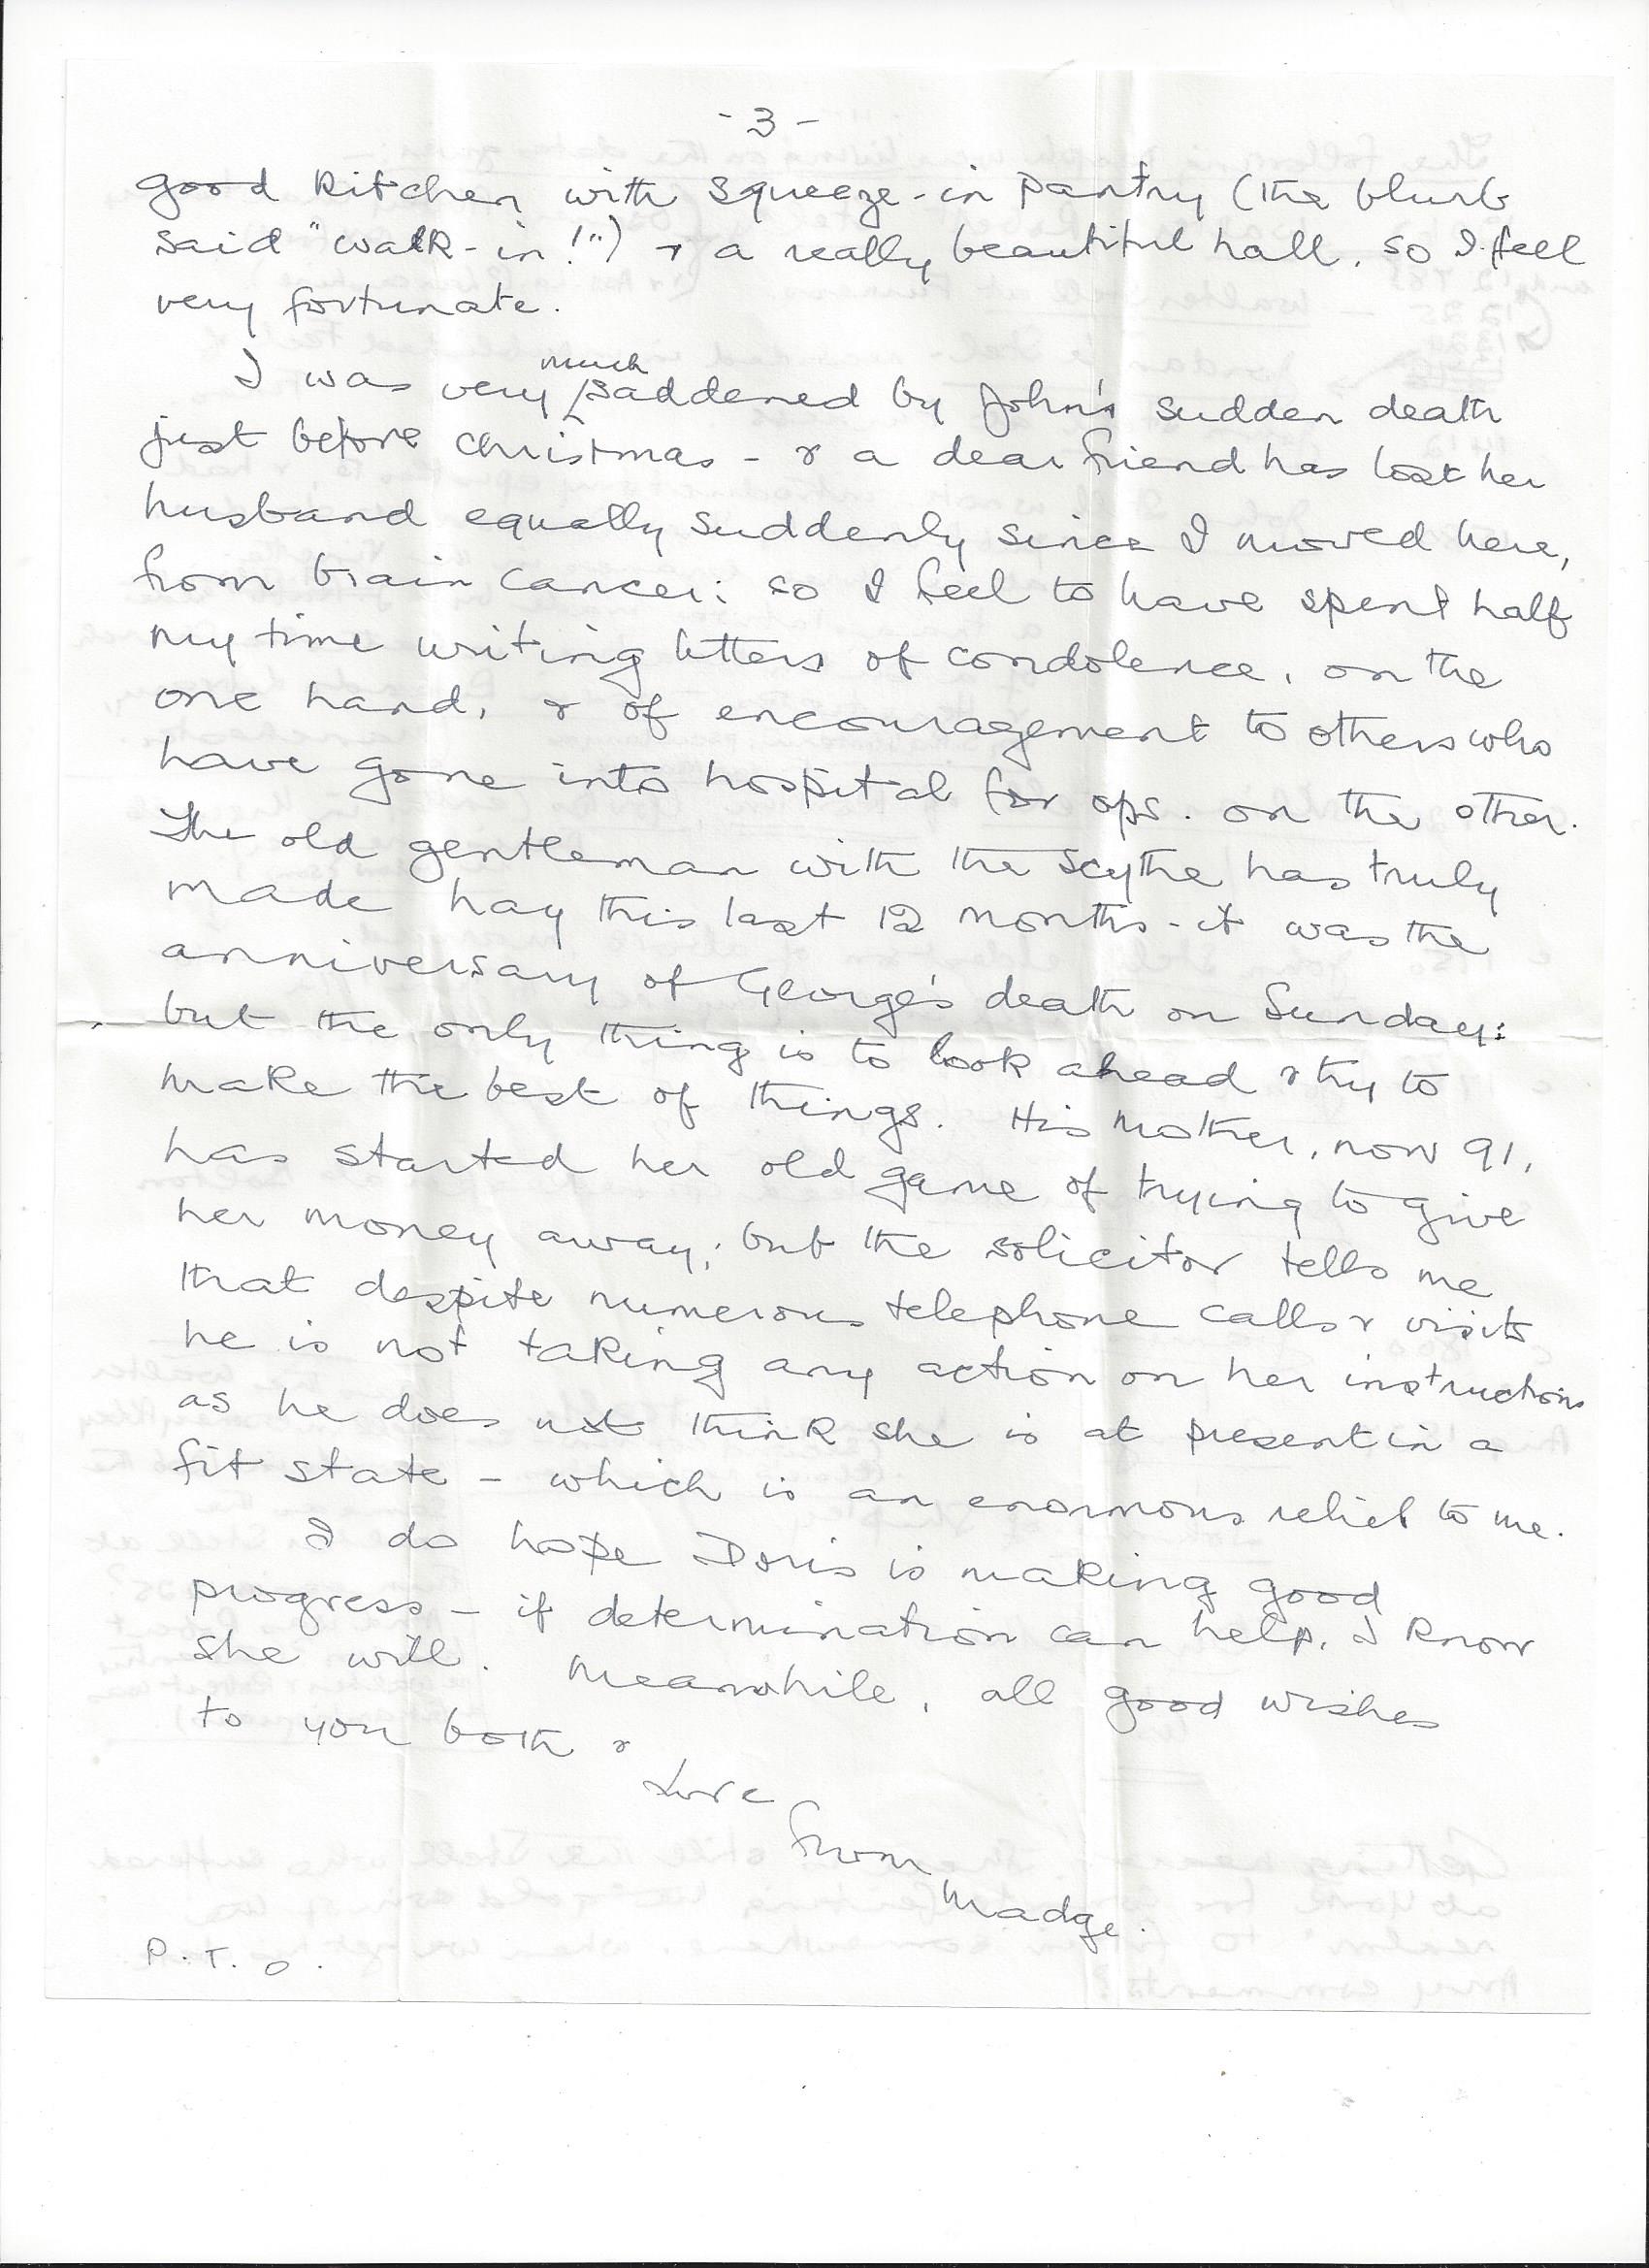 - 3 -
good kitchen with squeeze-in pantry (the blurb
said "walk-in!") & a really beautiful hall. so I feel
very fortunate.
I was very much saddened by John's sudden death
just before Christmas - & a dear friend has lost her
husband equally suddenly since I moved here,
from brain cancer: so I feel to have spent half
my time writing letters of condolence, on the
one hand, & of encouragement to others who
have gone into hospital for ops. on the other.
The old gentleman with the scythe has truly
made hay this last 12 months - it was the
anniversary of George's death on Sunday:
but the only thing is to look ahead & try to
make the best of things. His mother, now 91,
has started her old game of trying to give
her money away; but the solicitor tells me
that despite numerous telephone calls & visits
he is not taking any action on her instructions
as he does not think she is at present in a
fit state - which is an enormous relief to me.
I do hope Doris is making good
progress - if determination can help, I know
she will. Meanwhile, all good wishes
to you both &
Love
from
Madge.
P.T.O.